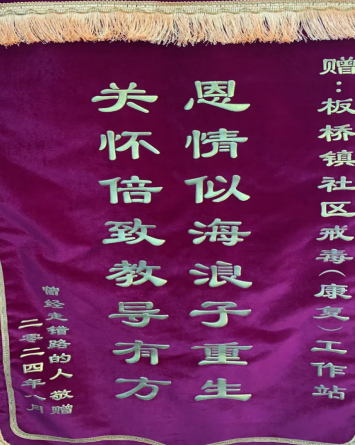 赠：板桥镇社区戒毒（康复）工作站
恩情似海浪子重生
关怀倍致教导有方
曾经走错路的人 敬赠
二零二四年八月